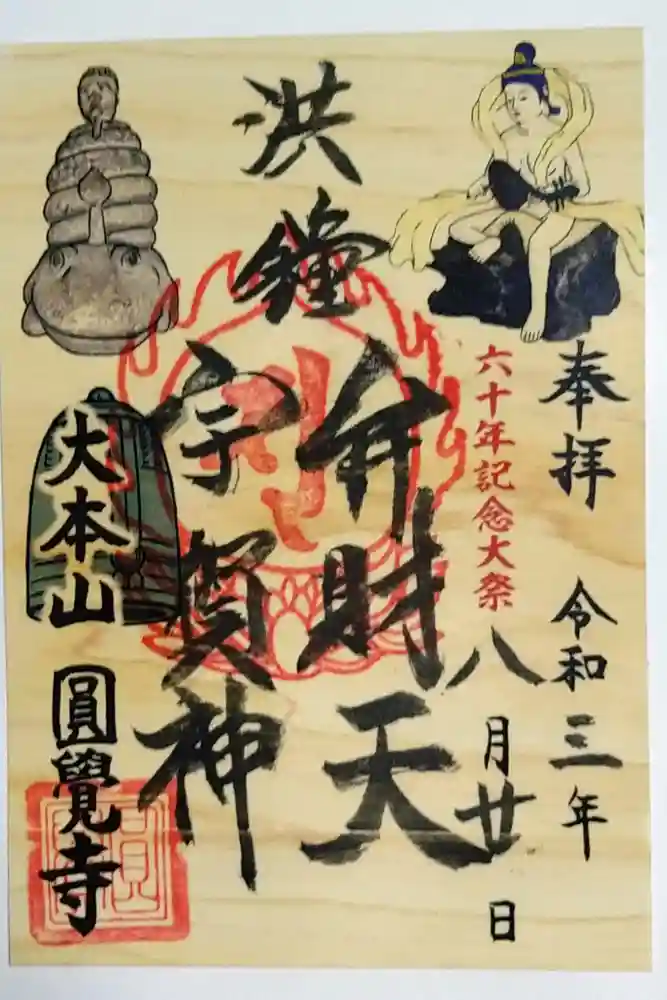 奉拝 令和三年
八月廿日
六十年記念大祭
洪鐘
弁財天
宇賀神
大本山
圓覺寺